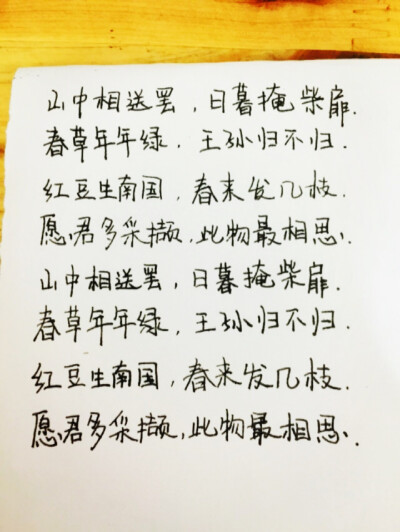 山中相送罢，日暮掩柴扉.
春草年年绿.王孙归不归.
红豆生南国，春来发几枝.
愿君多采撷,此物最相思.
山中相送罢，日暮掩柴扉.
春草年年绿，王孙归不归.
红豆生南国，春来发几枝.
愿君多采撷,此物最相思.